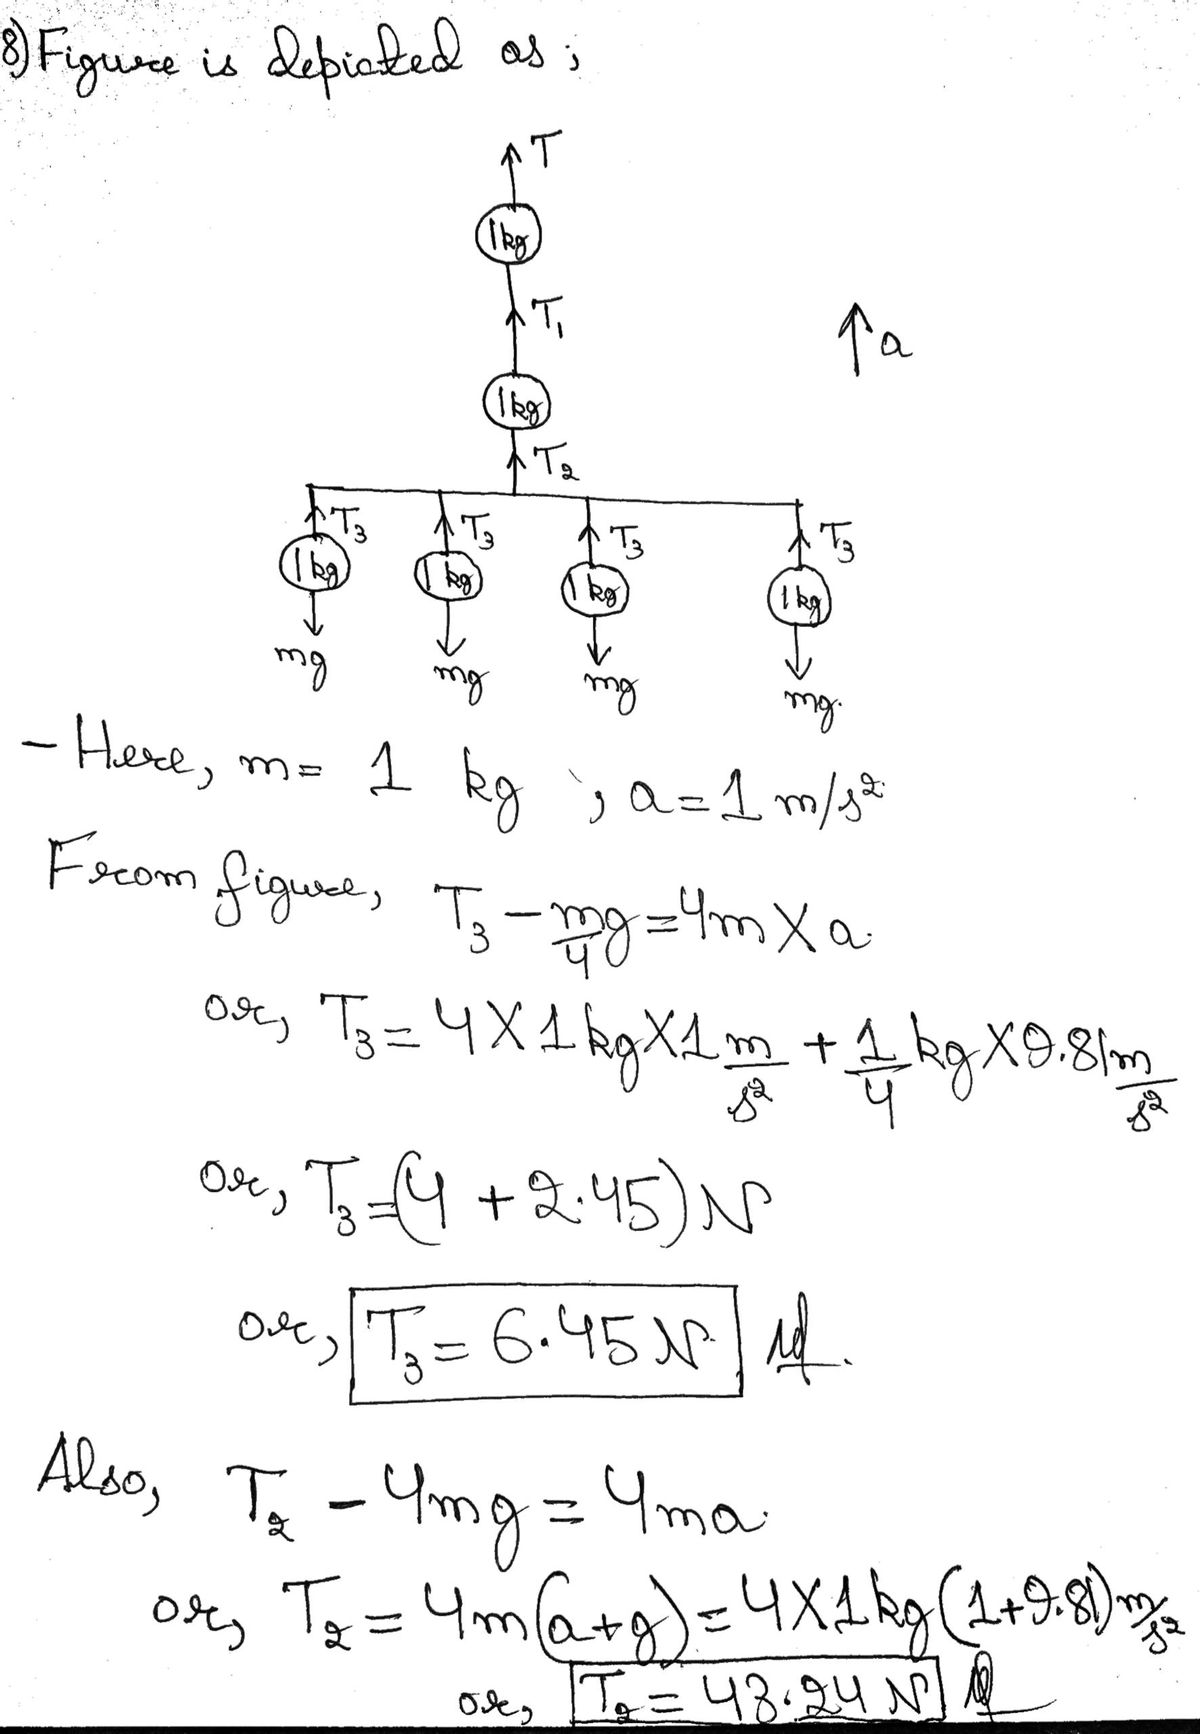 8) Figure is depicted as ;
T
1kg
T₁
↑a
1kg
T₂
T₃ T₃ T₃ T₃
1kg 1kg 1kg 1kg
mg mg mg mg.
- Here, m = 1 kg ; a = 1 m/s²
From figure, T₃ - m/4 g = 4m X a.
or, T₃ = 4 X 1 kg X 1 m/s² + 1/4 kg X 9.81 m/s²
or, T₃ = (4 + 2.45) N
or, T₃ = 6.45 N
Also, T₂ - 4mg = 4ma.
or, T₂ = 4m(a+g) = 4 X 1 kg (1+9.81) m/s²
or, T₂ = 43.24 N